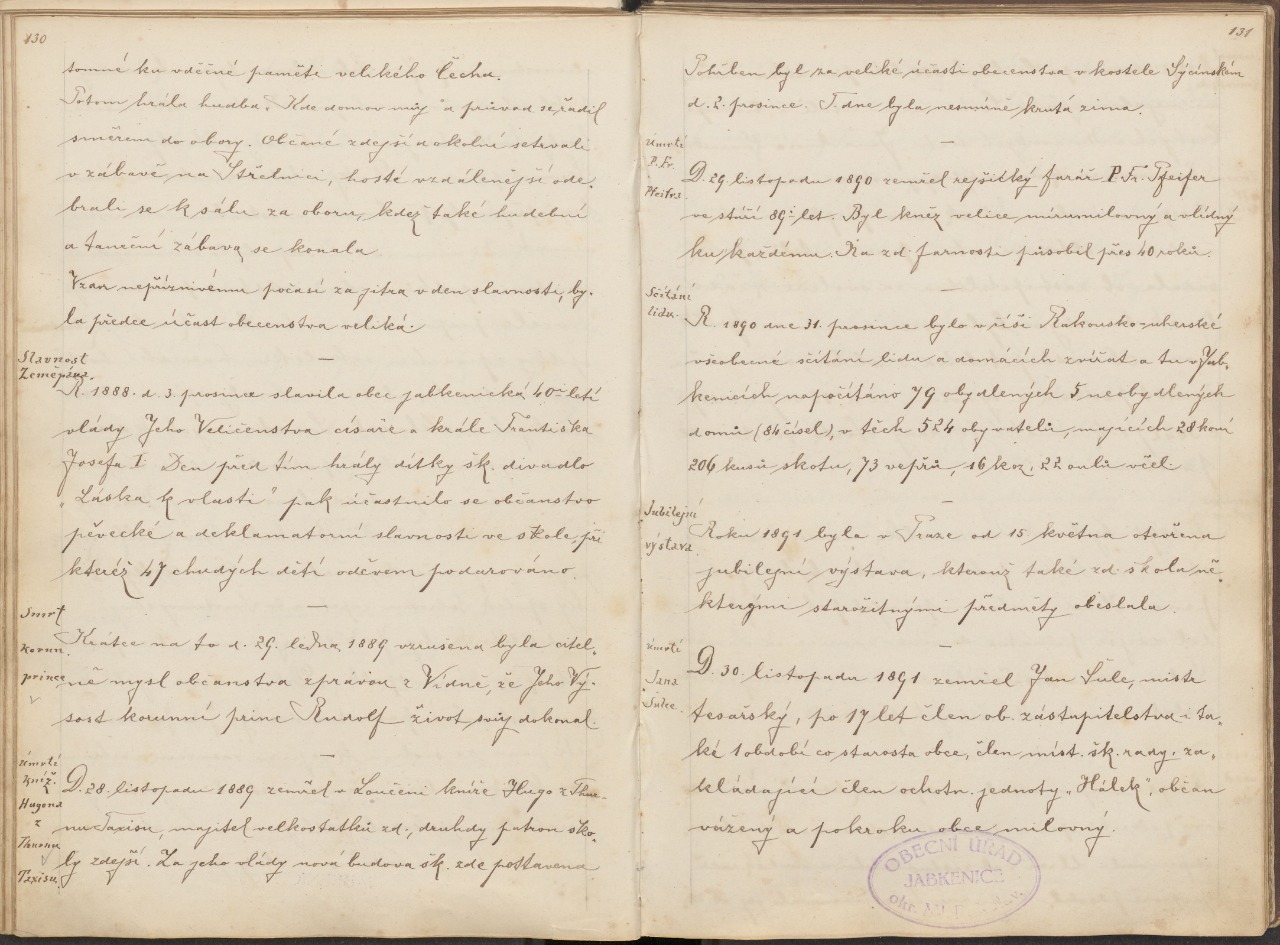 130
tomné ku vděčné paměti velikého Čecha.
Potom hrála hudba „Kde domov můj" a průvod se řadil
směrem do obory. Občané zdejší a okolní setrvali
v zábavě na Střelnici, hosté vzdálenější ode-
brali se k sálu za oborou, kdež také hudební
a taneční zábava se konala.
Vzdor nepříznivému počasí za jitra v den slavnosti, by-
la předce účast obecenstva veliká.
Slavnost
Zeměpána.
R. 1888. d. 3. prosince slavila obec jabkenická 40ti letí
vlády Jeho Veličenstva císaře a krále Františka
Josefa I. Den před tím hrály dítky šk. divadlo
„Láska k vlasti" pak účastnilo se občanstvo
pěvecké a deklamatorní slavnosti ve škole, při
kteréž 47 chudých dětí oděvem podarováno.
Smrt
korun.
prince
Krátce na to d. 29. ledna 1889 vzrušena byla citel-
ně mysl občanstva zprávou z Vídně, že Jeho Vý-
sost korunní princ Rudolf život svůj dokonal.
Úmrtí
kníž.
Hugona
z
Thurnu
Taxisu.
D. 28. listopadu 1889 zemřel v Loučeni kníže Hugo z Thur-
nu Taxisu, majitel velkostatků zd., druhdy patron ško-
ly zdejší. Za jeho vlády nová budova šk. zde postavena
131
Pohřben byl za veliké účasti obecenstva v kostele Sýčinském
d. 2. prosince. T. dne byla nesmírně krutá zima.
Úmrtí
P. Fr.
Pfeifra.
D. 29. listopadu 1890 zemřel rejšický farář P. Fr. Pfeifer
ve stáří 89i let. Byl kněz velice mírumilovný a vlídný
ku každému. Na zd. farnosti působil přes 40 roků.
Sčítání
lidu.
R. 1890 dne 31. prosince bylo v říši Rakousko-uherské
všeobecné sčítání lidu a domácích zvířat a tu v Jab-
kenicích napočítáno 79 obydlených 5 neobydlených
domů (84 čísel), v těch 524 obyvatelů, majících 28 koní
206 kusů skotu, 73 vepřů, 16 koz, 22 oulů včel.
Jubilejní
výstava.
Roku 1891 byla v Praze od 15. května otevřena
jubilejní výstava, kterouž také zd. škola ně-
kterými starožitnými předměty obeslala.
Úmrtí
Jana
Šulce.
D. 30. listopadu 1891 zemřel Jan Šulc, mistr
tesařský, po 17 let člen ob. zastupitelstva i ta-
ké 1 období co starosta obce, člen míst. šk. rady, za-
kládající člen ochotn. jednoty „Hálek", občan
vážený a pokroku obce milovný.
OBECNÍ ÚŘAD
JABKENICE
okr.